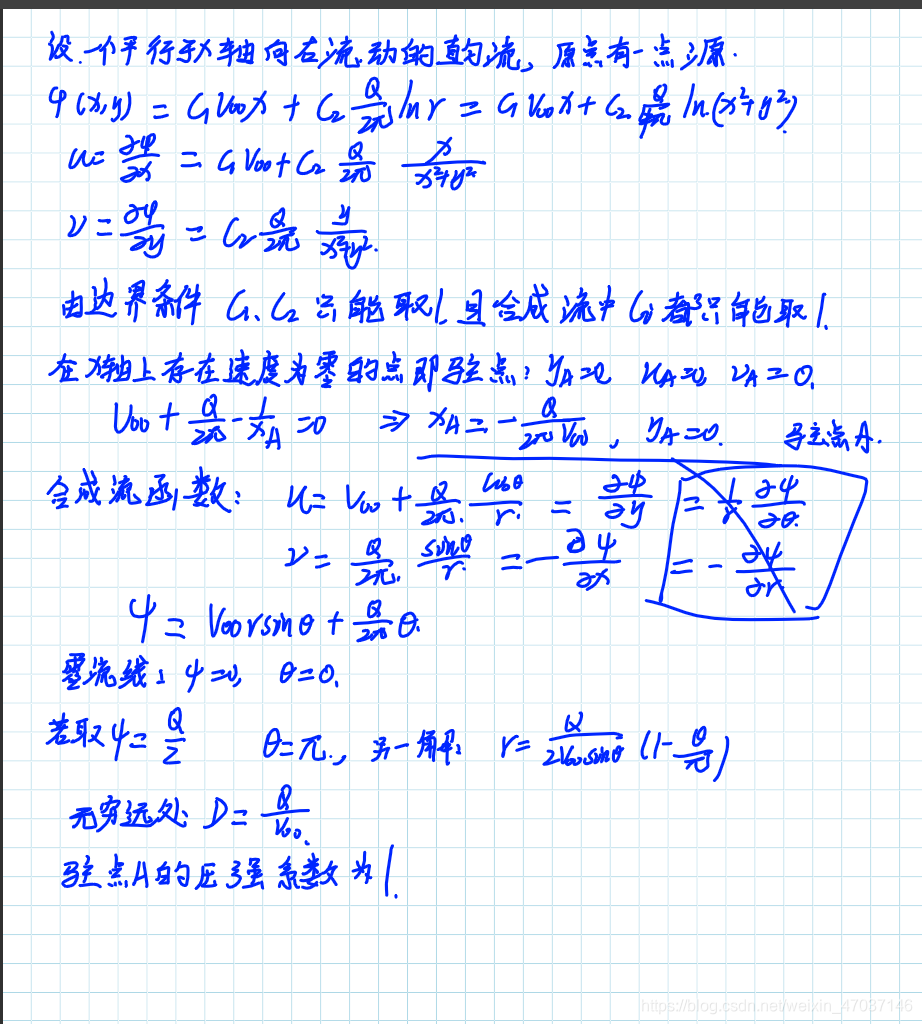 设一个平行于x轴向右流动的直匀流,原点有一点源.
φ(x,y) = C₁V∞x + C₂ Q/2π ln r = C₁V∞x + C₂ Q/4π ln(x²+y²)
u = ∂φ/∂x = C₁V∞ + C₂ Q/2π x/(x²+y²)
v = ∂φ/∂y = C₂ Q/2π y/(x²+y²).
由边界条件 C₁、C₂只能取1.且合成流中 Cᵢ都只能取1.
在x轴上存在速度为零的点即驻点: y_A=0, u_A=0, v_A=0.
V∞ + Q/2π · 1/x_A = 0 ⇒ x_A = - Q/(2πV∞), y_A=0. 驻点A.
合成流函数: u = V∞ + Q/2π. cosθ/r. = ∂ψ/∂y = 1/r ∂ψ/∂θ.
v = Q/2π. sinθ/r. = - ∂ψ/∂x = - ∂ψ/∂r
ψ = V∞ r sinθ + Q/2π θ.
零流线: ψ=0, θ=0.
若取ψ = Q/2 θ=π., 另一解: r = Q/(2V∞ sinθ) (1 - θ/π)
无穷远处: D = Q/V∞.
驻点A的压强系数为1.
https://blog.csdn.net/weixin_47037146